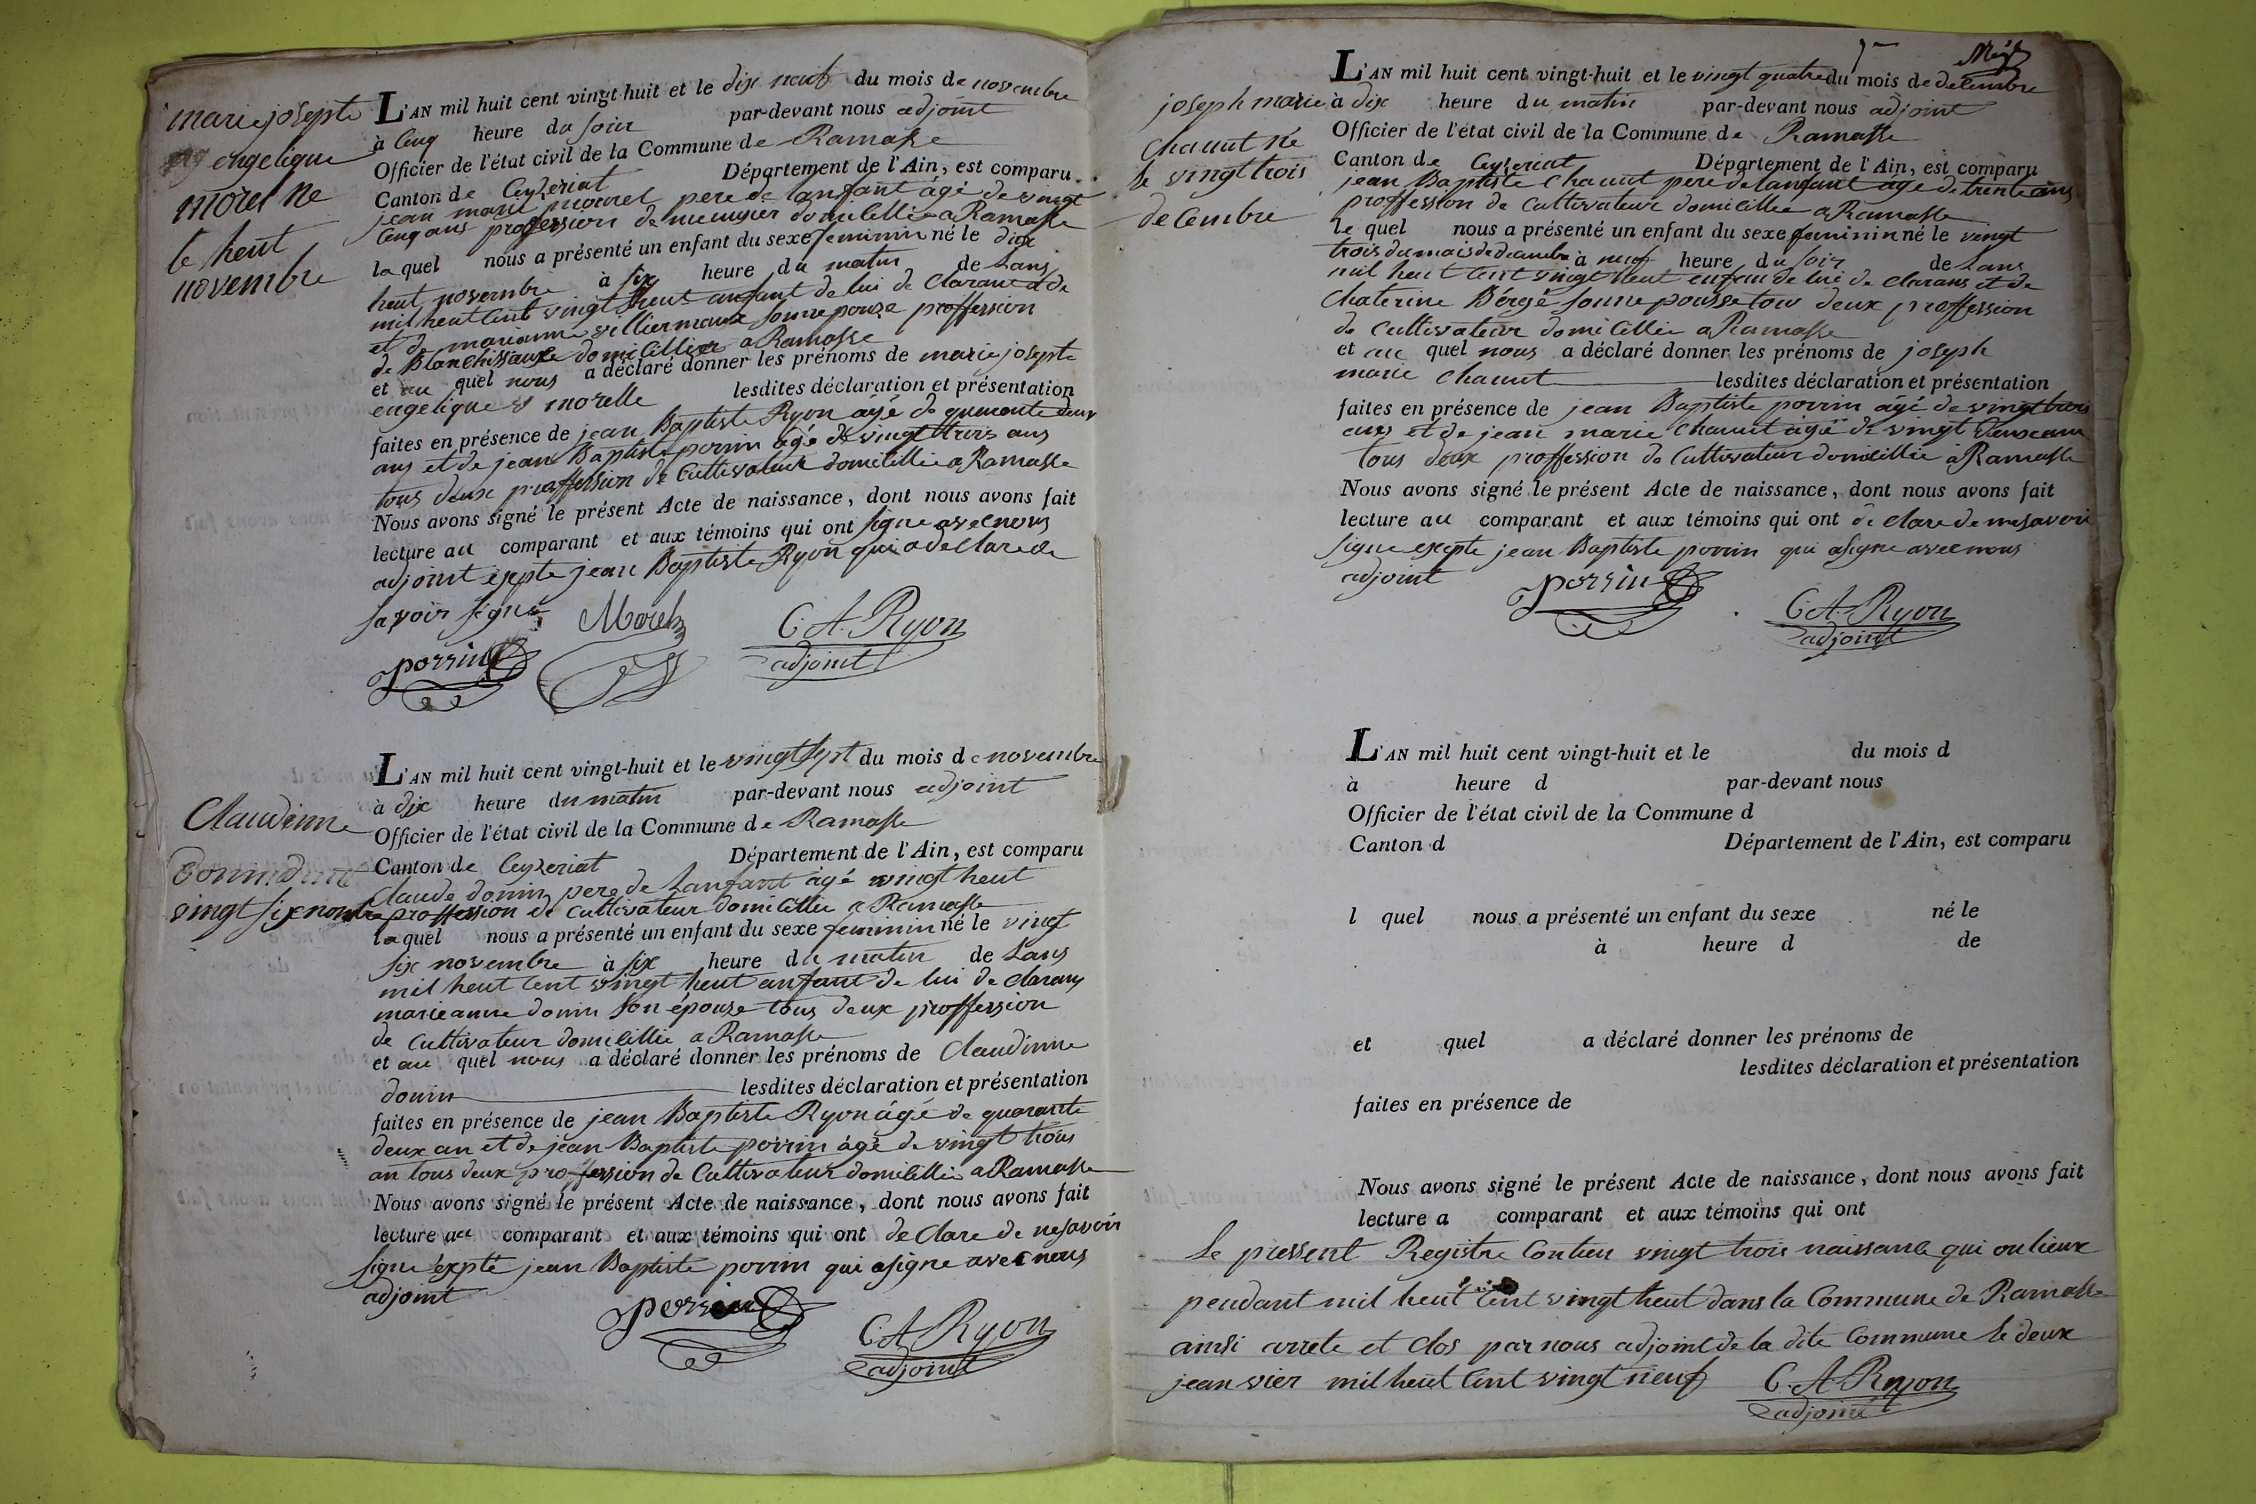 marie josepte
engelique
morel ne
le heut
novembre
L'AN mil huit cent vingt-huit et le dix neuf du mois de novembre
à cinq heure du soir par-devant nous adjoint
Officier de l'état civil de la Commune de Ramasse
Canton de Ceyzeriat Département de l'Ain, est comparu
jean marie mourel pere de lanfant âgé de vingt
cinq ans proffession de meunysier domicillié a Ramasse
laquel nous a présenté un enfant du sexe feminin né le dixe
heut novembre à six heure du matin de Lans
mil heut cent vingt heut anfant de lui de clarant et de
et de marianne villiermoux sonnepouze proffession
de Blanchissause domicillier a Ramasse
et au quel nous a déclaré donner les prénoms de marie josepte
engelique morelle lesdites déclaration et présentation
faites en présence de jean Baptiste Ryon âgé de quaronte deux
ans et de jean Baptiste porrin âgé de vingt trois ans
tous deux proffession de Cultivateur domicillié a Ramasse
Nous avons signé le présent Acte de naissance, dont nous avons fait
lecture au comparant et aux témoins qui ont signe avec nous
adjoint éxepte jean Baptiste Ryon qui a de clare de
savoir signé
Morel
porrin
C. A. Ryon
adjoint
Claudinne
Donin
vingt six novembre
L'AN mil huit cent vingt-huit et le vingt sept du mois de novembre
à dix heure du matin par-devant nous adjoint
Officier de l'état civil de la Commune de Ramasse
Canton de Ceyzeriat Département de l'Ain, est comparu
Claude donin pere de Lanfant âgé vingt heut
proffession de cultivateur domicillié a Ramasse
laquel nous a présenté un enfant du sexe feminin né le vingt
six novembre à six heure du matin de Lans
mil heut cent vingt heut anfant de lui de clarans
marieanne donin son épouze tous deux proffession
de Cultivateur domicillié a Ramasse
et au quel nous a déclaré donner les prénoms de Claudinne
donin lesdites déclaration et présentation
faites en présence de jean Baptiste Ryon âgé de quarante
deux an et de jean Baptiste porrin âgé de vingt trois
an tous deux proffession de Cultivateur domicillié a Ramasse
Nous avons signé le présent Acte de naissance, dont nous avons fait
lecture au comparant et aux témoins qui ont de Clare de ne savoir
signe éxpté jean Baptiste porrin qui a signe avec nous
adjoint
porrin
C. A. Ryon
adjoint
joseph marie
chanut né
le vingt trois
de cembre
L'AN mil huit cent vingt-huit et le vingt quatre du mois de decembre
à dix heure du matin par-devant nous adjoint
Officier de l'état civil de la Commune de Ramasse
Canton de Ceyzeriat Département de l'Ain, est comparu
jean Baptiste Chanut pere de lanfant âgé de trente ans
proffession de Cultivateur domicillié a Ramasse
le quel nous a présenté un enfant du sexe feminin né le vingt
trois du mois de decembre à neuf heure du soir de Lans
mil heut cent vingt heut enfan de lui de clarans et de
Chaterine Bérgé sonne pousse tous deux proffession
de Cultivateur domicillié a Ramasse
et au quel nous a déclaré donner les prénoms de joseph
marie chanut lesdites déclaration et présentation
faites en présence de jean Baptiste porrin âgé de vingt trois
ans et de jean marie Chanut âgé de vingt deux ans
tous deux proffession de Cultivateur domicillié a Ramasse
Nous avons signé le présent Acte de naissance, dont nous avons fait
lecture au comparant et aux témoins qui ont de clare de ne savoir
signe exepte jean Baptiste porrin qui a signe avec nous
adjoint
porrin
C. A. Ryon
adjoint
L'AN mil huit cent vingt-huit et le du mois d
à heure d par-devant nous
Officier de l'état civil de la Commune d
Canton d Département de l'Ain, est comparu
l quel nous a présenté un enfant du sexe né le
à heure d de
et quel a déclaré donner les prénoms de
lesdites déclaration et présentation
faites en présence de
Nous avons signé le présent Acte de naissance, dont nous avons fait
lecture a comparant et aux témoins qui ont
Le pressent Registre Contien vingt trois naissance qui on lieux
pendant mil heut cent vingt heut dans la Commune de Ramasse
ainsi arrete et clos par nous adjoint de la dite Commune le deux
jeanvier mil heut cent vingt neuf
C. A. Ryon
adjoint